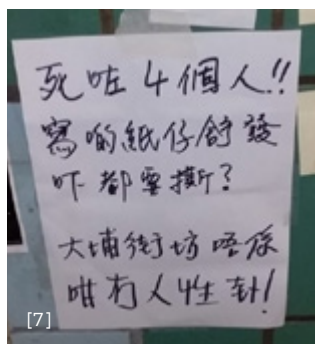 死咗4個人!!
寫啲紙仔舒發
吓都要撕?
大埔街坊唔係
咁冇人性䡎!
[7]